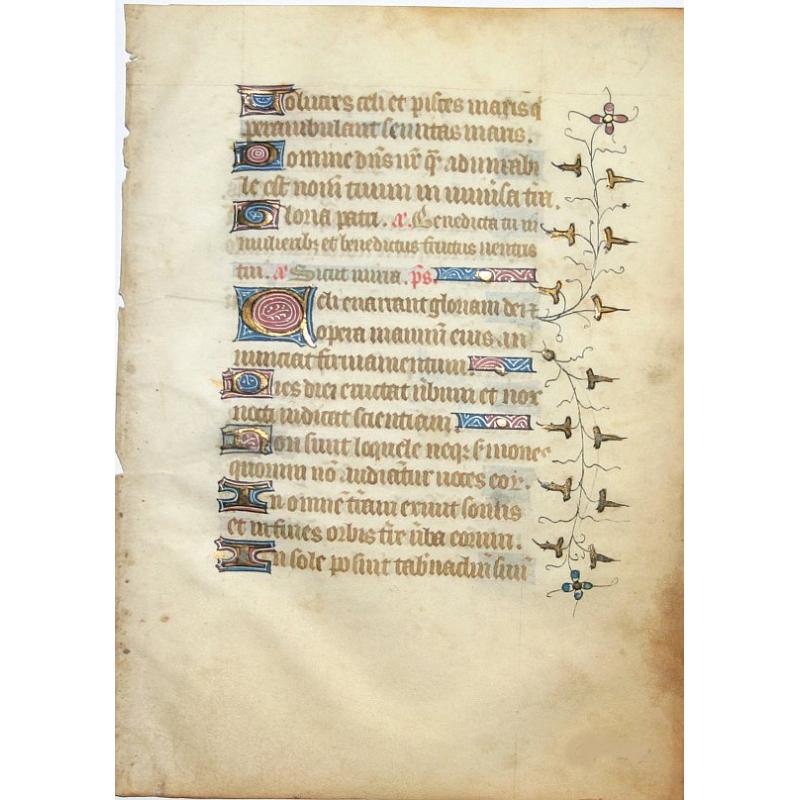 Volucres celi et pisces maris q̇
perambulant semitas maris.
Domine dn̄s nr̄ q̄ admirabi
le est nom̄ tuum in univ̄sa tr̄a.
Gloria patri. a᷒ Benedicta tu in
mulierib; et benedictus fructus ventris
tui. a᷒ Sicut mirra. p̄s.
Celi enarrant gloriam dei ⁊
opera manuū eius an
nunciat firmamentum.
Dies diei eructat v̄bum et nox
nocti indicat scientiam.
Non sunt loquele neq; s̄mones
quorum nō audiāt̄ur voces eoꝝ.
In omnē t̄ram exiuit sonus
et in fines orbis tr̄e v̄ba eorum.
In sole posuit tab̄naclm̄ suū